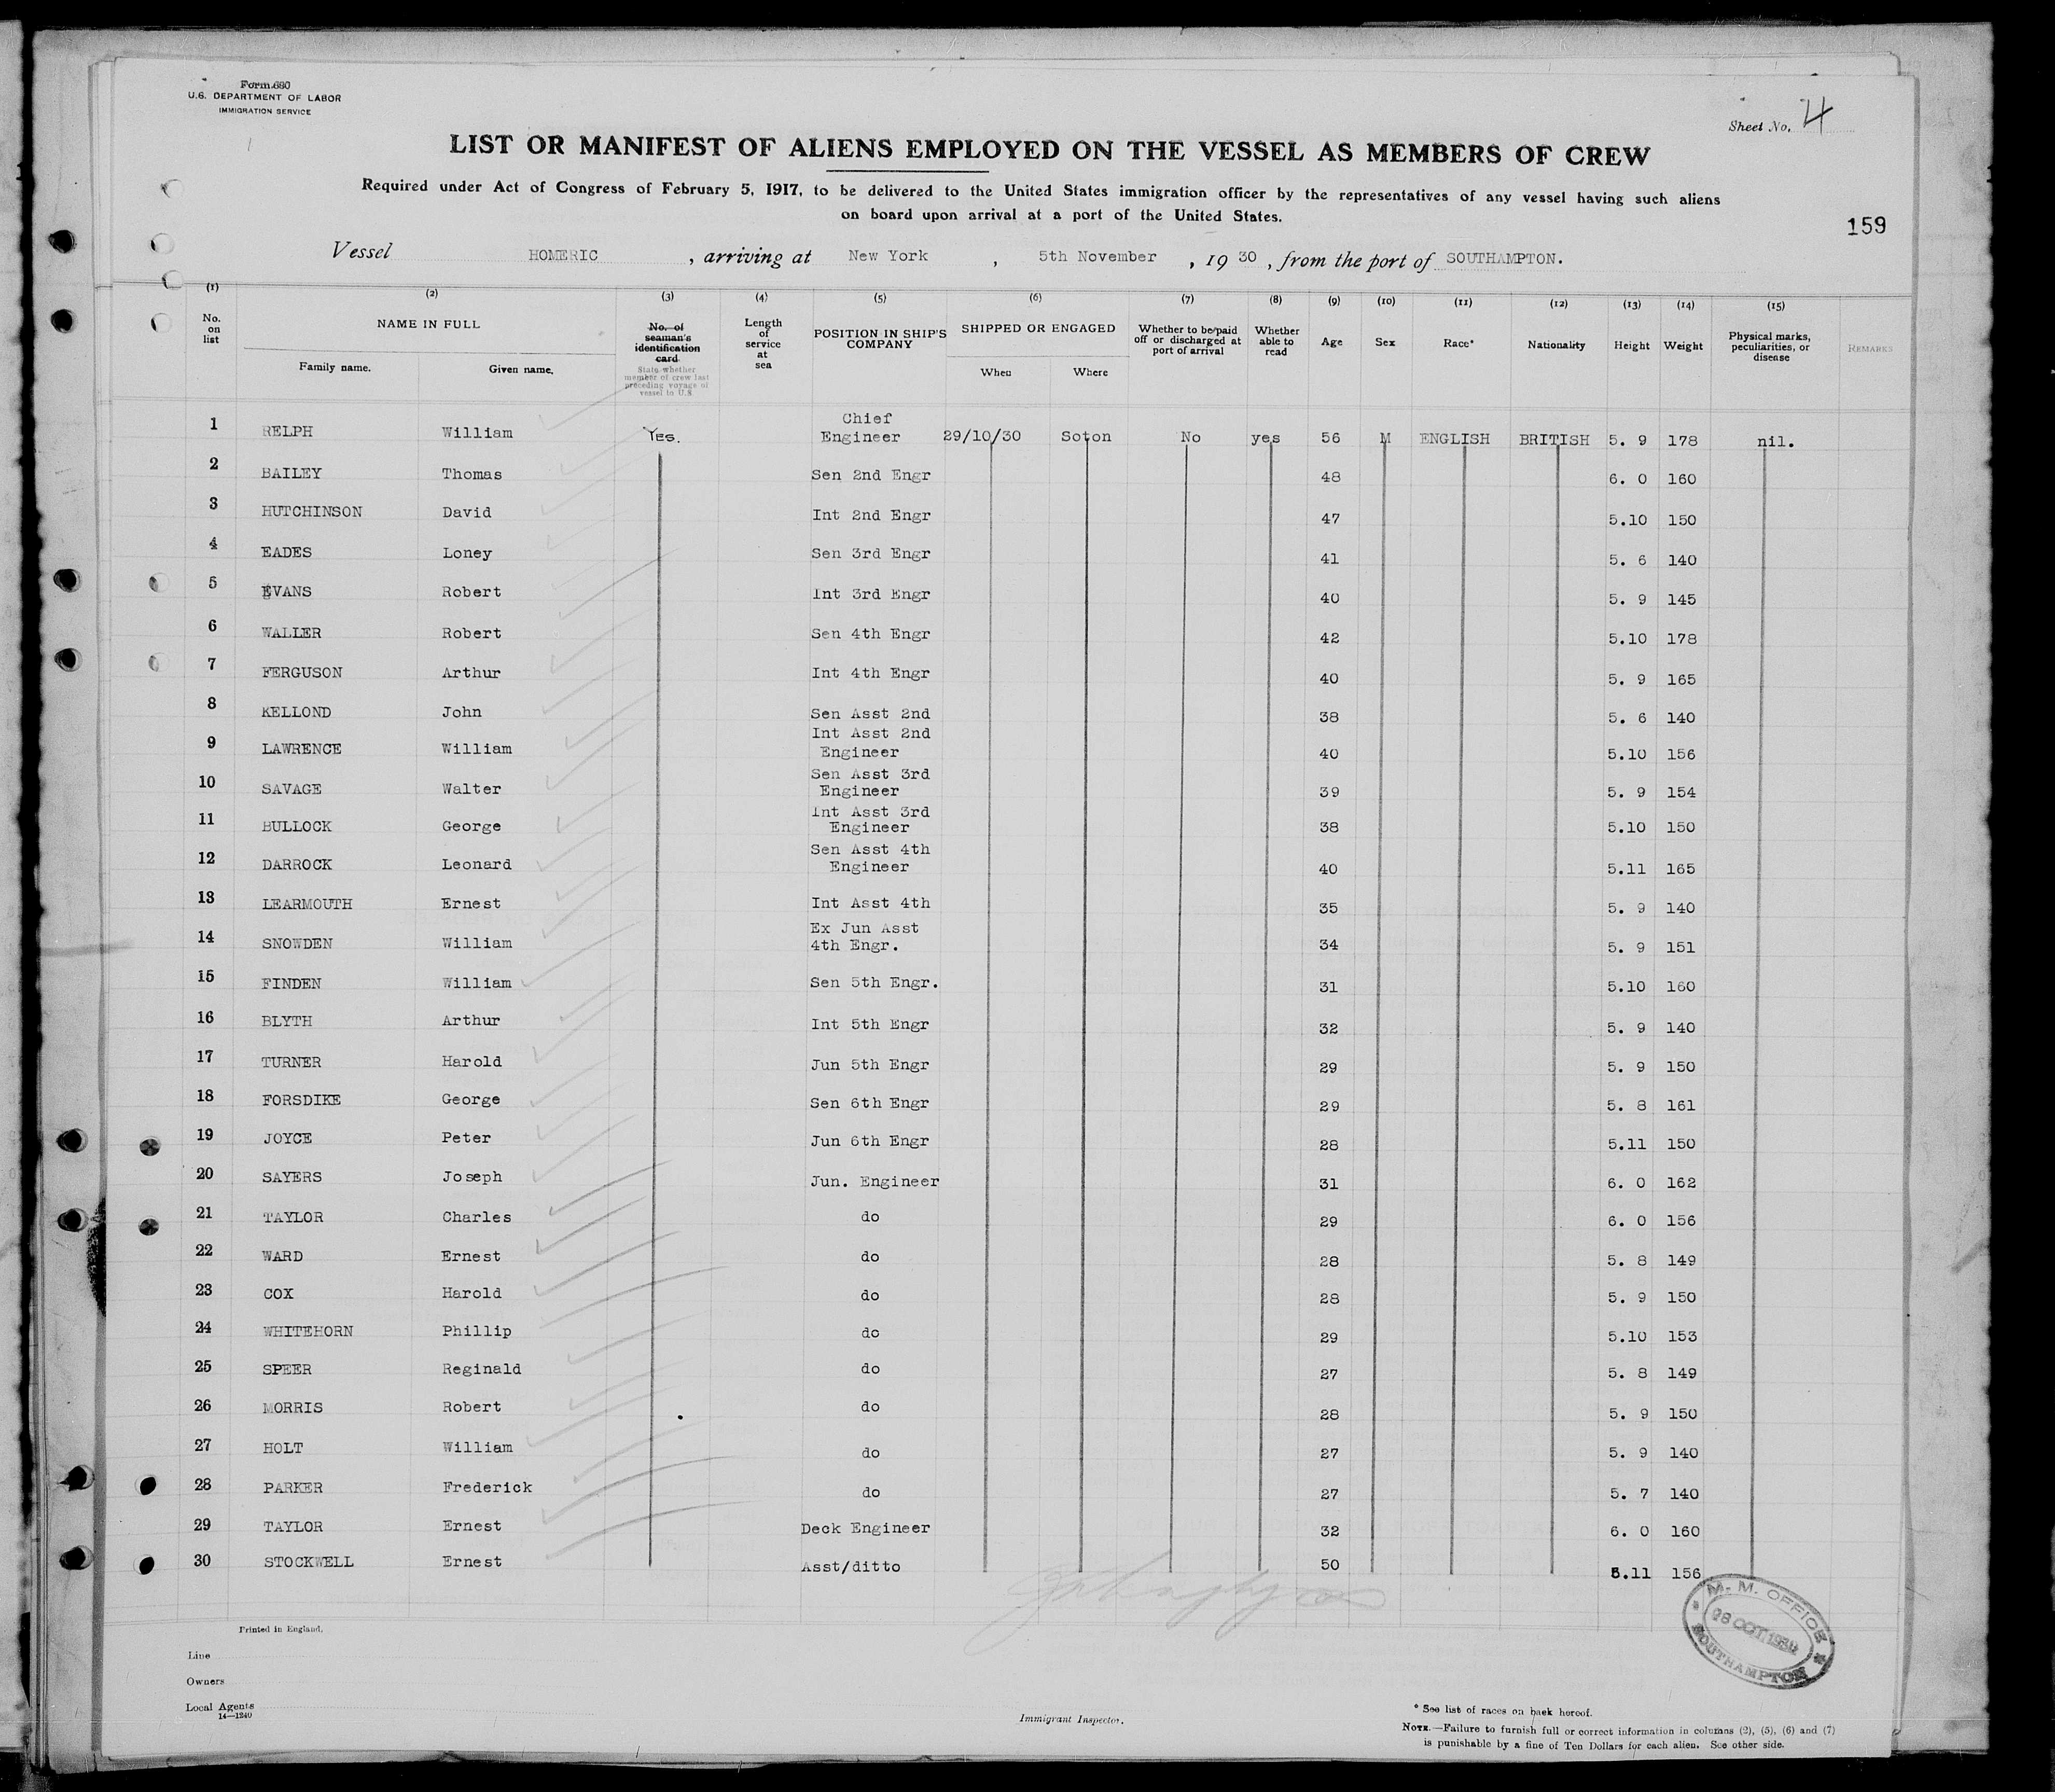 Form 680
U.S. DEPARTMENT OF LABOR
IMMIGRATION SERVICE
Sheet No. 4
LIST OR MANIFEST OF ALIENS EMPLOYED ON THE VESSEL AS MEMBERS OF CREW
Required under Act of Congress of February 5, 1917, to be delivered to the United States immigration officer by the representatives of any vessel having such aliens
on board upon arrival at a port of the United States.
159
Vessel HOMERIC, arriving at New York, 5th November, 1930, from the port of SOUTHAMPTON.
(1) (2) (3) (4) (5) (6) (7) (8) (9) (10) (11) (12) (13) (14) (15)
No. on list
NAME IN FULL
Family name. Given name.
No. of seaman's identification card
State whether member of crew last preceding voyage of vessel to U.S.
Length of service at sea
POSITION IN SHIP'S COMPANY
SHIPPED OR ENGAGED
When Where
Whether to be paid off or discharged at port of arrival
Whether able to read
Age
Sex
Race*
Nationality
Height
Weight
Physical marks, peculiarities, or disease
REMARKS
1 RELPH William Yes. Chief Engineer 29/10/30 Soton No yes 56 M ENGLISH BRITISH 5. 9 178 nil.
2 BAILEY Thomas Sen 2nd Engr 48 6. 0 160
3 HUTCHINSON David Int 2nd Engr 47 5.10 150
4 EADES Loney Sen 3rd Engr 41 5. 6 140
5 EVANS Robert Int 3rd Engr 40 5. 9 145
6 WALLER Robert Sen 4th Engr 42 5.10 178
7 FERGUSON Arthur Int 4th Engr 40 5. 9 165
8 KELLOND John Sen Asst 2nd 38 5. 6 140
9 LAWRENCE William Int Asst 2nd Engineer 40 5.10 156
10 SAVAGE Walter Sen Asst 3rd Engineer 39 5. 9 154
11 BULLOCK George Int Asst 3rd Engineer 38 5.10 150
12 DARROCK Leonard Sen Asst 4th Engineer 40 5.11 165
13 LEARMOUTH Ernest Int Asst 4th 35 5. 9 140
14 SNOWDEN William Ex Jun Asst 4th Engr. 34 5. 9 151
15 FINDEN William Sen 5th Engr. 31 5.10 160
16 BLYTH Arthur Int 5th Engr 32 5. 9 140
17 TURNER Harold Jun 5th Engr 29 5. 9 150
18 FORSDIKE George Sen 6th Engr 29 5. 8 161
19 JOYCE Peter Jun 6th Engr 28 5.11 150
20 SAYERS Joseph Jun. Engineer 31 6. 0 162
21 TAYLOR Charles do 29 6. 0 156
22 WARD Ernest do 28 5. 8 149
23 COX Harold do 28 5. 9 150
24 WHITEHORN Phillip do 29 5.10 153
25 SPEER Reginald do 27 5. 8 149
26 MORRIS Robert do 28 5. 9 150
27 HOLT William do 27 5. 9 140
28 PARKER Frederick do 27 5. 7 140
29 TAYLOR Ernest Deck Engineer 32 6. 0 160
30 STOCKWELL Ernest Asst/ditto 50 5.11 156
M. M. OFFICE
28 OCT 1930
SOUTHAMPTON
Printed in England.
Line
Owners
Local Agents
14—1240
Immigrant Inspector.
* See list of races on back hereof.
NOTE.—Failure to furnish full or correct information in columns (2), (5), (6) and (7)
is punishable by a fine of Ten Dollars for each alien. See other side.